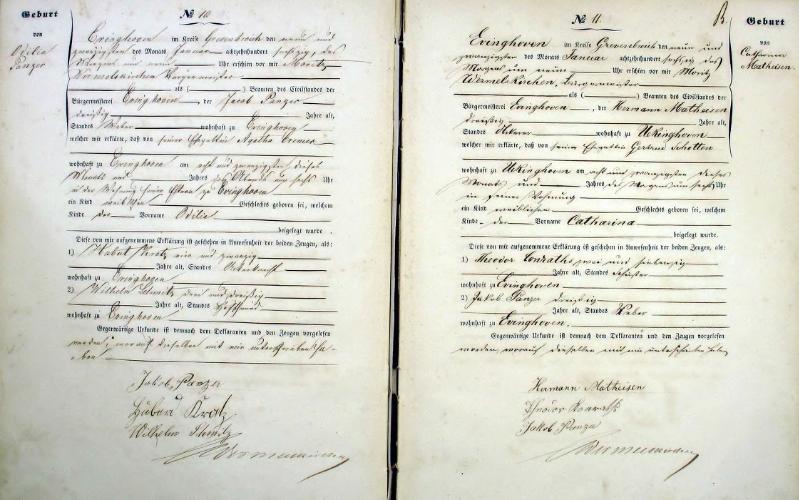 Geburt
von
Odilia
Panzer
№ 10
Evinghoven im Kreise Grevenbroich den neun und
zwanzigsten des Monats Januar achtzehnhundert sechszig, des
Morgens um neun Uhr erschien vor mir Moritz
Wermelskirchen Bürgermeister
als ( ) Beamten des Civilstandes der
Bürgermeisterei Evinghoven, der Jacob Panzer
dreißig Jahre alt,
Standes Weber wohnhaft zu Evinghoven
welcher mir erklärte, daß von seiner Ehegattin Agatha Cremer
wohnhaft zu Evinghoven am acht und zwanzigsten dieses
Monats und Jahres des Abends um sechs Uhr
in der Wohnung seiner Eltern zu Evinghoven
ein Kind weiblichen Geschlechts geboren sei, welchem
Kinde der Vorname Odilia
beigelegt wurde.
Diese von mir aufgenommene Erklärung ist geschehen in Anwesenheit der beiden Zeugen, als:
1) Hubert Kratz ein und zwanzig
Jahre alt, Standes Ackerknecht
wohnhaft zu Evinghoven
2) Wilhelm Schmitz drei und dreißig
Jahre alt, Standes
wohnhaft zu Evinghoven
Gegenwärtige Urkunde ist demnach dem Deklaranten und den Zeugen vorgelesen
worden, worauf dieselben mit mir unterschrieben ha-
ben
Jakob Panzer
Hubert Kratz
Wilhelm Schmitz
Geburt
von
Catharina
Matheisen.
№ 11
B.
Evinghoven im Kreise Grevenbroich den neun und
zwanzigsten des Monats Januar achtzehnhundert sechszig des
Morgens um neun Uhr erschien vor mir Moritz
Wermelskirchen, Bürgermeister
als ( ) Beamten des Civilstandes der
Bürgermeisterei Evinghoven, der Hermann Matheisen
dreißig Jahre alt,
Standes Ackerer wohnhaft zu Ückinghoven
welcher mir erklärte, daß von seiner Ehegattin Gertrud Schotten
wohnhaft zu Ückinghoven am acht und zwanzigsten dieses
Monats und Jahres, des Morgens um sechs Uhr
in seiner Wohnung
ein Kind weiblichen Geschlechts geboren sei, welchem
Kinde der Vorname Catharina
beigelegt wurde.
Diese von mir aufgenommene Erklärung ist geschehen in Anwesenheit der beiden Zeugen, als:
1) Theodor Conraths zwei und siebenzig
Jahre alt, Standes Schuster
wohnhaft zu Evinghoven
2) Jakob Panzer dreißig
Jahre alt, Standes Weber
wohnhaft zu Evinghoven.
Gegenwärtige Urkunde ist demnach dem Deklaranten und den Zeugen vorgelesen
worden, worauf dieselben mit mir unterschrieben haben
Hermann Matheisen
Theodor Konraths
Jakob Panzer